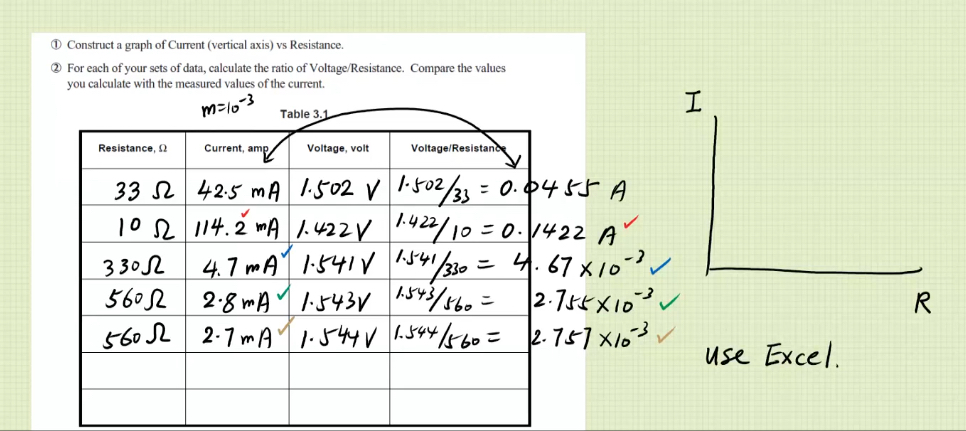 ① Construct a graph of Current (vertical axis) vs Resistance.
② For each of your sets of data, calculate the ratio of Voltage/Resistance. Compare the values
you calculate with the measured values of the current.
m=10⁻³
Table 3.1
Resistance, Ω Current, amp Voltage, volt Voltage/Resistance
33 Ω 42.5 mA 1.502 V 1.502/33 = 0.0455 A
10 Ω 114.2 mA 1.422V 1.422/10 = 0.1422 A
330Ω 4.7 mA 1.541V 1.541/330 = 4.67 x10⁻³
560Ω 2.8 mA 1.543V 1.543/560 = 2.755x10⁻³
560Ω 2.7 mA 1.544V 1.544/560 = 2.757 x10⁻³
I
R
use Excel.